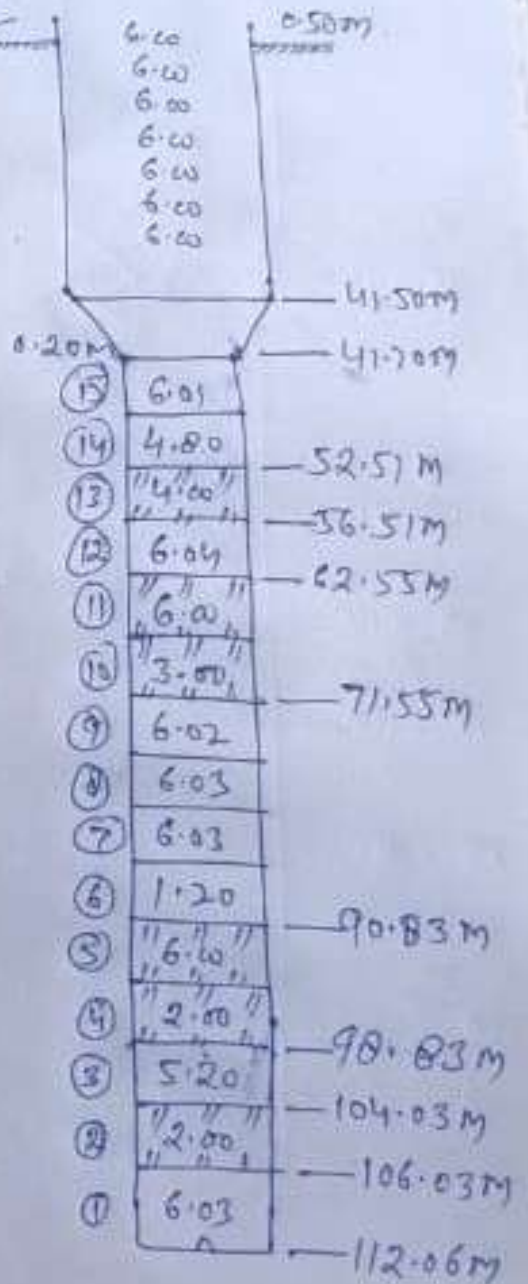 0.50m
6.00
6.00
6.00
6.00
6.00
6.00
6.00
41.50m
0.20m
41.70m
15 6.01
14 4.80
52.51 m
13 4.00
56.51m
12 6.04
62.55m
11 6.00
10 3.00
71.55m
9 6.02
8 6.03
7 6.03
6 1.20
90.83 m
5 6.00
4 2.00
98.83 m
3 5.20
104.03m
2 2.00
106.03m
1 6.03
112.06m